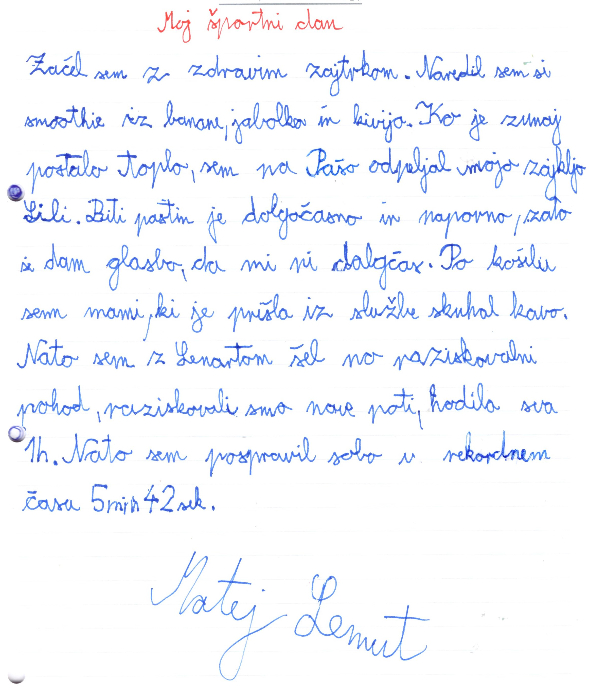 Moj športni dan
Začel sem z zdravim zajtrkom. Naredil sem si
smoothie iz banane, jabolka in kivija. Ko je zunaj
postalo toplo, sem na Pašo odpeljal mojo zajkljo
Lili. Biti pastir je dolgočasno in naporno, zato
si dam glasbo, da mi ni dolgčas. Po kosilu
sem mami, ki je prišla iz službe skuhal kavo.
Nato sem z Lenartom šel na raziskovalni
pohod, raziskovali smo nove poti, hodila sva
1h. Nato sem pospravil sobo v rekordnem
času 5min 42sek.
Matej Lemut